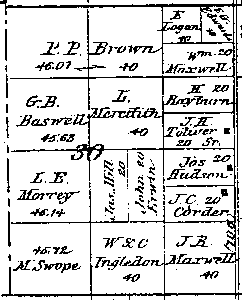 E
Logan
40
P. P. Brown
46.07 40
Wm. 20
Maxwell
G. B.
Baswell
45.63
L.
Meredith
40
H 20
Rayburn
J. H.
Toliver
20 Sr.
30
L. E.
Morrey
46.14
Jas. Hill
20
John
Erwin
20
Jos 20
Hudson
J. C. 20
Corder
45.72
M. Swope
W & C
Ingledon
40
J. R.
Maxwell
40